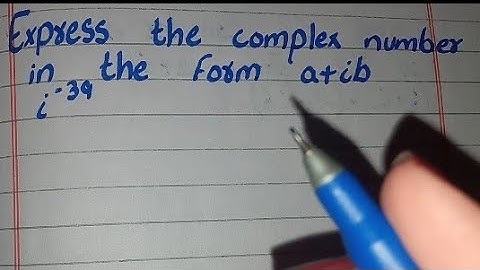 Express the complex number
in the form a+ib
i⁻³⁹